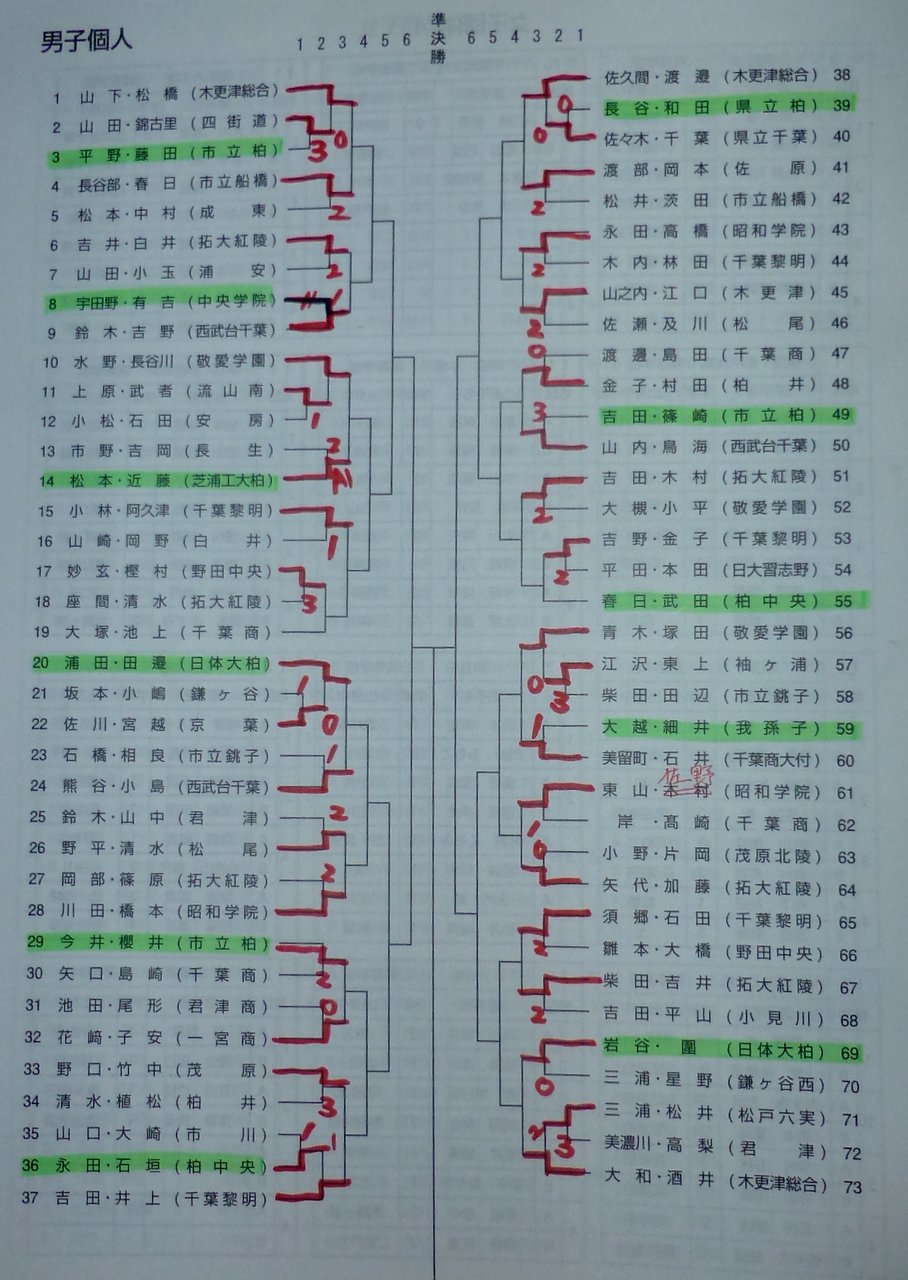 男子個人
1 2 3 4 5 6 準決勝 6 5 4 3 2 1
1 山下・松橋 (木更津総合)
2 山田・錦古里 (四街道)
3 平野・藤田 (市立柏)
4 長谷部・春日 (市立船橋)
5 松本・中村 (成東)
6 吉井・白井 (拓大紅陵)
7 山田・小玉 (浦安)
8 宇田野・有吉 (中央学院)
9 鈴木・吉野 (西武台千葉)
10 水野・長谷川 (敬愛学園)
11 上原・武者 (流山南)
12 小松・石田 (安房)
13 市野・吉岡 (長生)
14 松本・近藤 (芝浦工大柏)
15 小林・阿久津 (千葉黎明)
16 山崎・岡野 (白井)
17 妙玄・樫村 (野田中央)
18 座間・清水 (拓大紅陵)
19 大塚・池上 (千葉商)
20 浦田・田邉 (日体大柏)
21 坂本・小嶋 (鎌ヶ谷)
22 佐川・宮越 (京葉)
23 石橋・相良 (市立銚子)
24 熊谷・小島 (西武台千葉)
25 鈴木・山中 (君津)
26 野平・清水 (松尾)
27 岡部・篠原 (拓大紅陵)
28 川田・橋本 (昭和学院)
29 今井・櫻井 (市立柏)
30 矢口・島崎 (千葉商)
31 池田・尾形 (君津商)
32 花﨑・子安 (一宮商)
33 野口・竹中 (茂原)
34 清水・植松 (柏井)
35 山口・大崎 (市川)
36 永田・石垣 (柏中央)
37 吉田・井上 (千葉黎明)
佐久間・渡邉 (木更津総合) 38
長谷・和田 (県立柏) 39
佐々木・千葉 (県立千葉) 40
渡部・岡本 (佐原) 41
松井・茨田 (市立船橋) 42
永田・高橋 (昭和学院) 43
木内・林田 (千葉黎明) 44
山之内・江口 (木更津) 45
佐瀬・及川 (松尾) 46
渡邉・島田 (千葉商) 47
金子・村田 (柏井) 48
吉田・篠崎 (市立柏) 49
山内・鳥海 (西武台千葉) 50
吉田・木村 (拓大紅陵) 51
大槻・小平 (敬愛学園) 52
吉野・金子 (千葉黎明) 53
平田・本田 (日大習志野) 54
春日・武田 (柏中央) 55
青木・塚田 (敬愛学園) 56
江沢・東上 (袖ヶ浦) 57
柴田・田辺 (市立銚子) 58
大越・細井 (我孫子) 59
美留町・石井 (千葉商大付) 60
佐野
東山・木村 (昭和学院) 61
岸・髙崎 (千葉商) 62
小野・片岡 (茂原北陵) 63
矢代・加藤 (拓大紅陵) 64
須郷・石田 (千葉黎明) 65
雛本・大橋 (野田中央) 66
柴田・吉井 (拓大紅陵) 67
吉田・平山 (小見川) 68
岩谷・圍 (日体大柏) 69
三浦・星野 (鎌ヶ谷西) 70
三浦・松井 (松戸六実) 71
美濃川・高梨 (君津) 72
大和・酒井 (木更津総合) 73